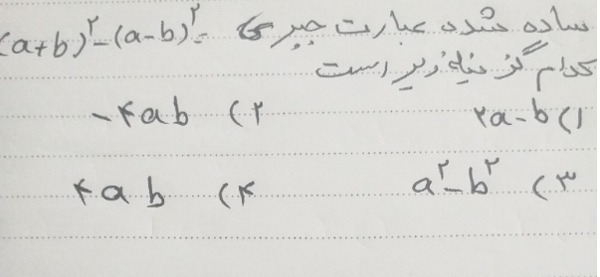 ساده شده عبارت جبری (a+b)^۲-(a-b)^۲=
کدام گزینه زیر است
۱) ۲a-b ۲) -۴ab
۳) a^۲-b^۲ ۴) ۴ab